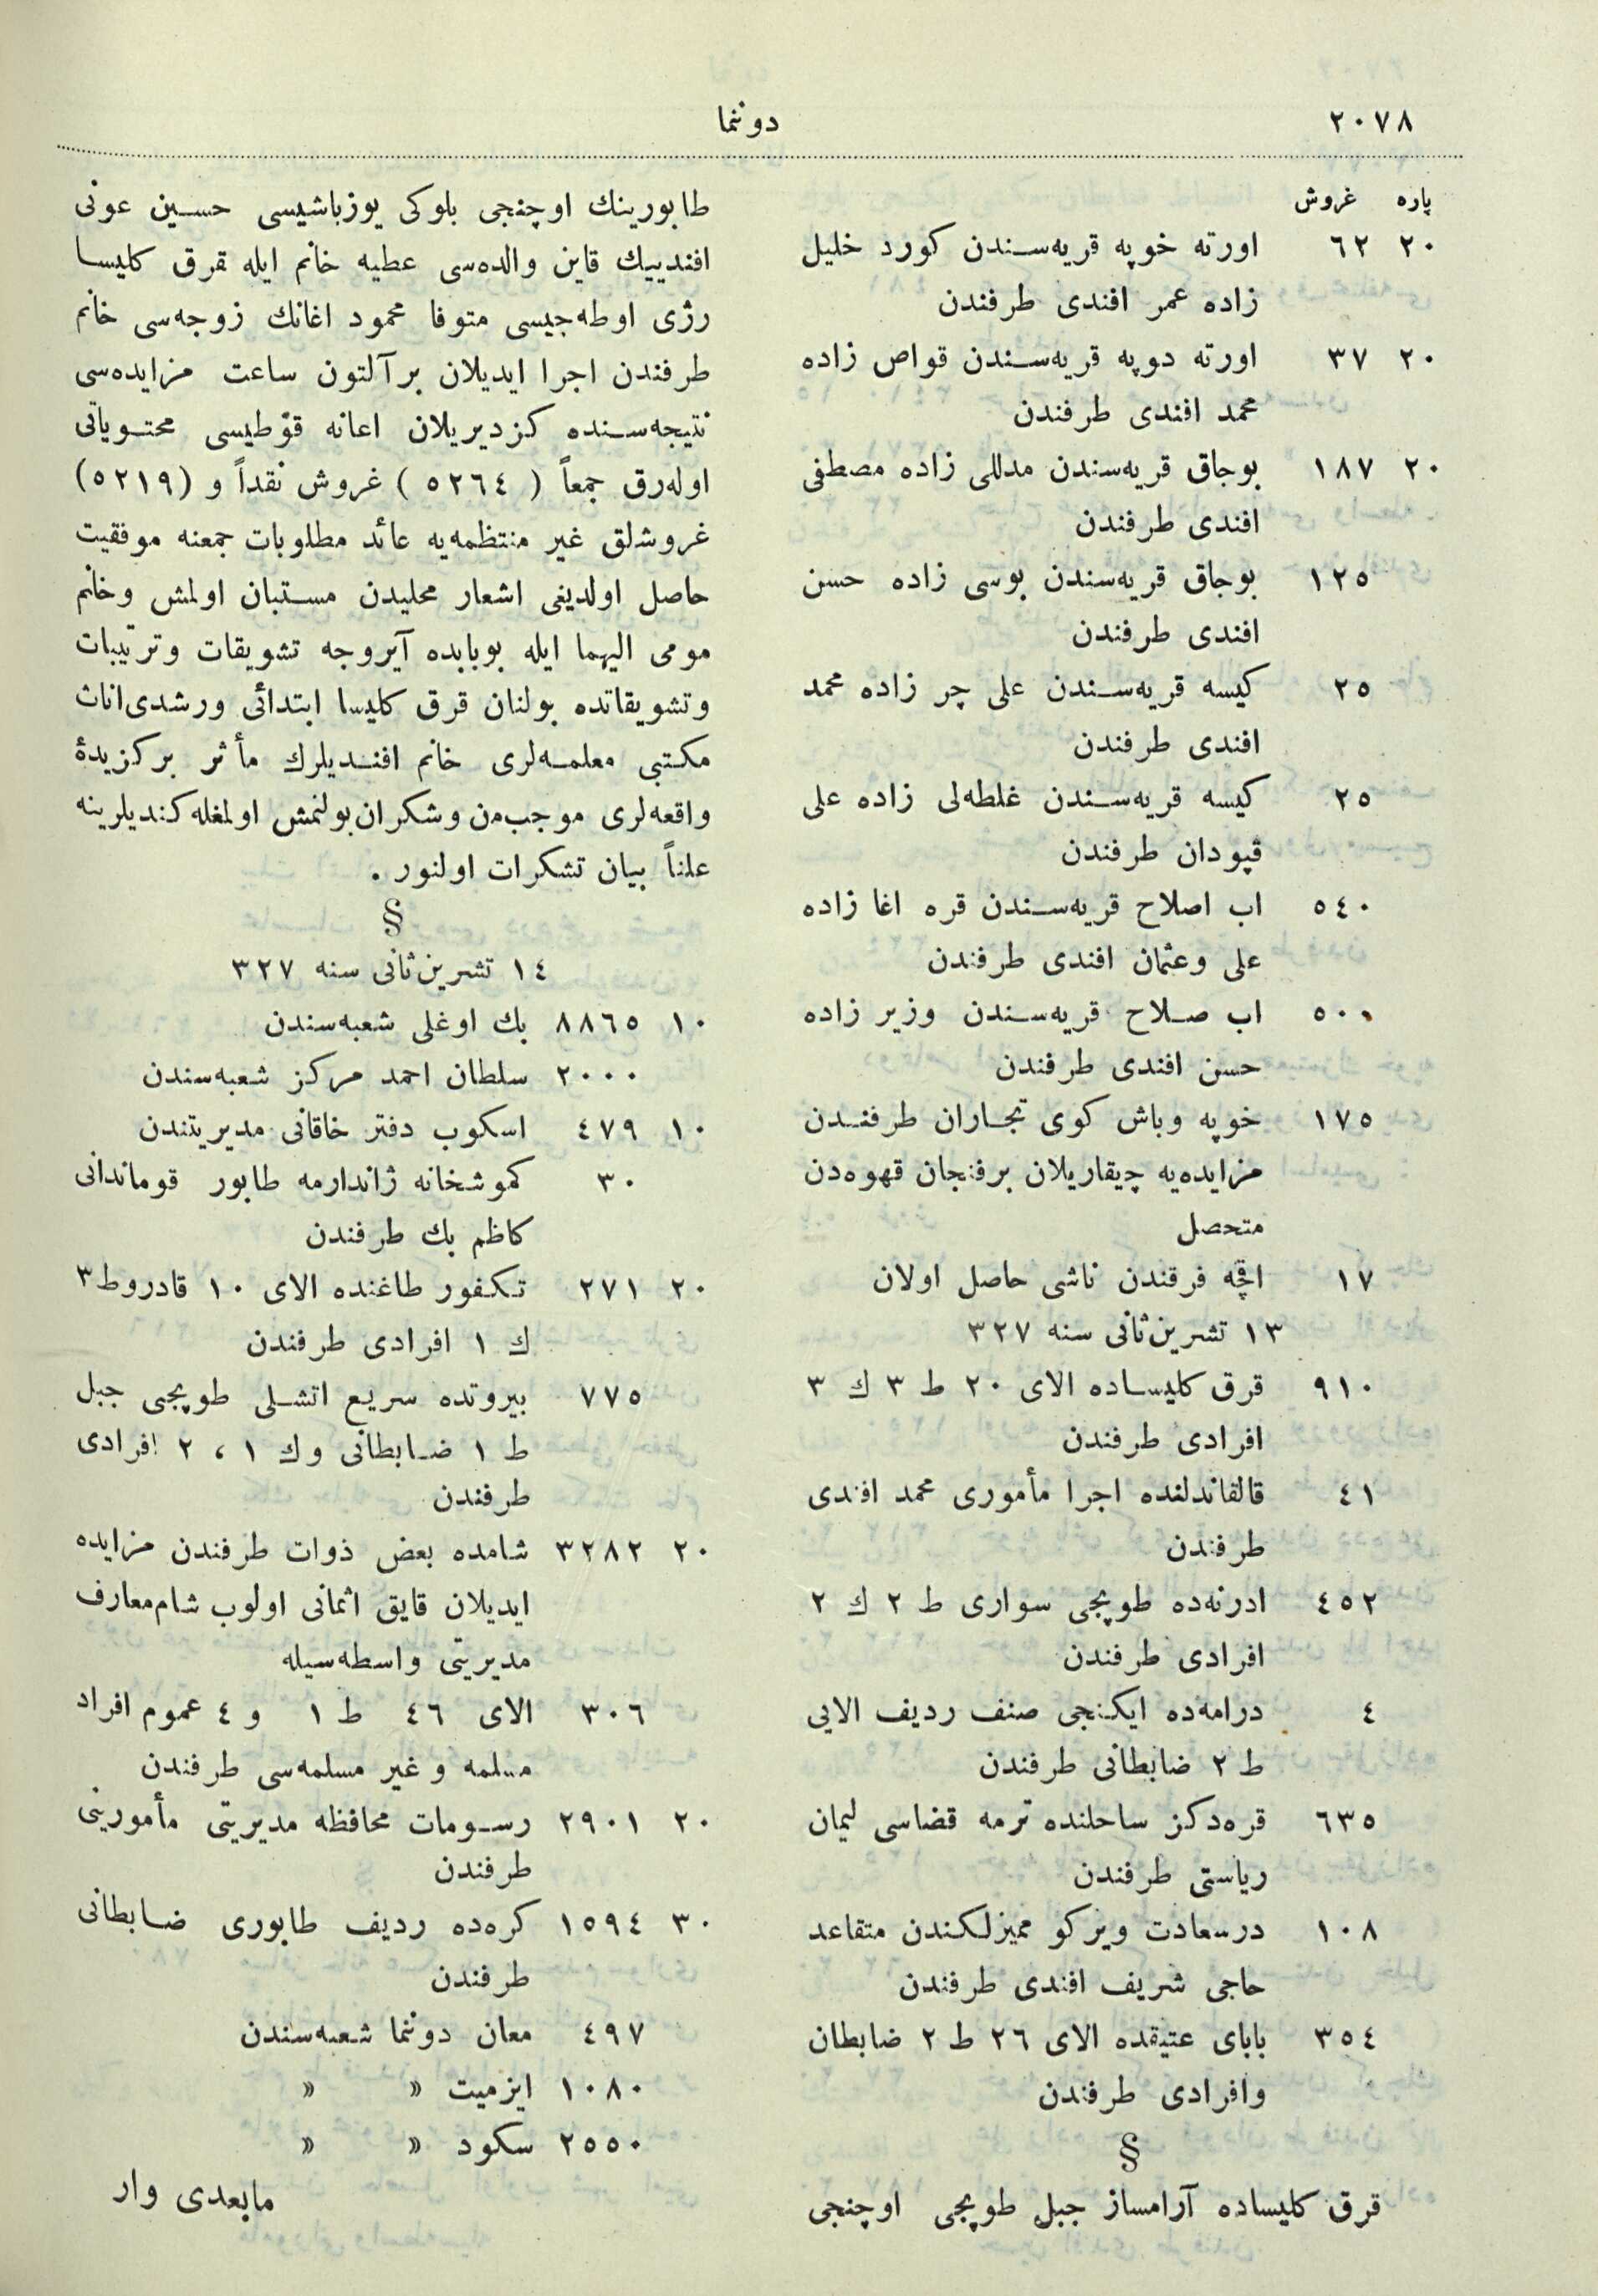 ٢٠٧٨
دوننما
پاره غروش
٢٠ ٦٢ اورته خوپه قریه‌سندن كورد خلیل
زاده عمر افندی طرفندن
٢٠ ٣٧ اورته دوپه قریه‌سندن قواص زاده
محمد افندی طرفندن
٢٠ ١٨٧ بوجاق قریه‌سندن مدللی زاده مصطفی
افندی طرفندن
١٢٥ بوجاق قریه‌سندن بوسی زاده حسن
افندی طرفندن
٢٥ كیسه قریه‌سندن علی چر زاده محمد
افندی طرفندن
٢٥ كیسه قریه‌سندن غلطه‌لی زاده علی
قپودان طرفندن
٥٤٠ اب اصلاح قریه‌سندن قره اغا زاده
علی وعثمان افندی طرفندن
٥٠٠ اب صلاح قریه‌سندن وزیر زاده
حسن افندی طرفندن
١٧٥ خوپه وباش كوی تجاران طرفندن
مزایده‌یه چیقاریلان برفنجان قهوه‌دن
متحصل
١٧ اقچه فرقندن ناشی حاصل اولان
١٣ تشرین‌ثانی سنه ٣٢٧
٩١٠ قرق كلیساده الای ٢٠ ط ٣ ك ٣
افرادی طرفندن
٤١ قالقاندلنده اجرا مأموری محمد افندی
طرفندن
٤٥٢ ادرنه‌ده طوپجی سواری ط ٢ ك ٢
افرادی طرفندن
٤ درامه‌ده ایكنجی صنف ردیف الایی
ط ٢ ضابطانی طرفندن
٦٣٥ قره‌دكز ساحلنده ترمه قضاسی لیمان
ریاستی طرفندن
١٠٨ درسعادت ویركو ممیزلكندن متقاعد
حاجی شریف افندی طرفندن
٣٥٤ بابای عتیقده الای ٢٦ ط ٢ ضابطان
وافرادی طرفندن
§
قرق كلیساده آرامساز جبل طوپجی اوچنجی
طابورینك اوچنجی بلوكی یوزباشیسی حسین عونی
افندییك قاین والده‌سی عطیه خانم ایله قرق كلیسا
رژی اوطه‌جیسی متوفا محمود اغانك زوجه‌سی خانم
طرفندن اجرا ایدیلان برآلتون ساعت مزایده‌سی
نتیجه‌سنده كزدیریلان اعانه قوطیسی محتویاتی
اوله‌رق جمعاً ( ٥٢٦٤ ) غروش نقداً و (٥٢١٩)
غروشلق غیر منتظمه‌یه عائد مطلوبات جمعنه موفقیت
حاصل اولدیغی اشعار محلیدن مستبان اولمش وخانم
مومی الیهما ایله بوبابده آیروجه تشویقات وترتیبات
وتشویقاتده بولنان قرق كلیسا ابتدائی ورشدی‌اناث
مكتبی معلمه‌لری خانم افندیلرك مأثر بركزیدۀ
واقعه‌لری موجب‌من وشكران‌بولنمش اولمغله‌كندیلرینه
علناً بیان تشكرات اولنور .
§
١٤ تشرین‌ثانی سنه ٣٢٧
١٠ ٨٨٦٥ بك اوغلی شعبه‌سندن
٢٠٠٠ سلطان احمد مركز شعبه‌سندن
١٠ ٤٧٩ اسكوب دفتر خاقانی مدیریتندن
٣٠ كموشخانه ژاندارمه طابور قوماندانی
كاظم بك طرفندن
٢٠ ٢٧١ تكفور طاغنده الای ١٠ قادروط ٣
ك ١ افرادی طرفندن
٧٧٥ بیروتده سریع اتشلی طوپجی جبل
ط ١ ضابطانی وك ١ ، ٢ افرادی
طرفندن
٢٠ ٣٢٨٢ شامده بعض ذوات طرفندن مزایده
ایدیلان قایق اثمانی اولوب شام‌معارف
مدیریتی واسطه‌سیله
٣٠٦ الای ٤٦ ط ١ و ٤ عموم افراد
مسلمه و غیر مسلمه‌سی طرفندن
٢٠ ٢٩٠١ رسومات محافظه مدیریتی مأمورینی
طرفندن
٣٠ ١٥٩٤ كره‌ده ردیف طابوری ضابطانی
طرفندن
٤٩٧ معان دوننما شعبه‌سندن
١٠٨٠ ایزمیت » »
٢٥٥٠ سكود » »
مابعدی وار